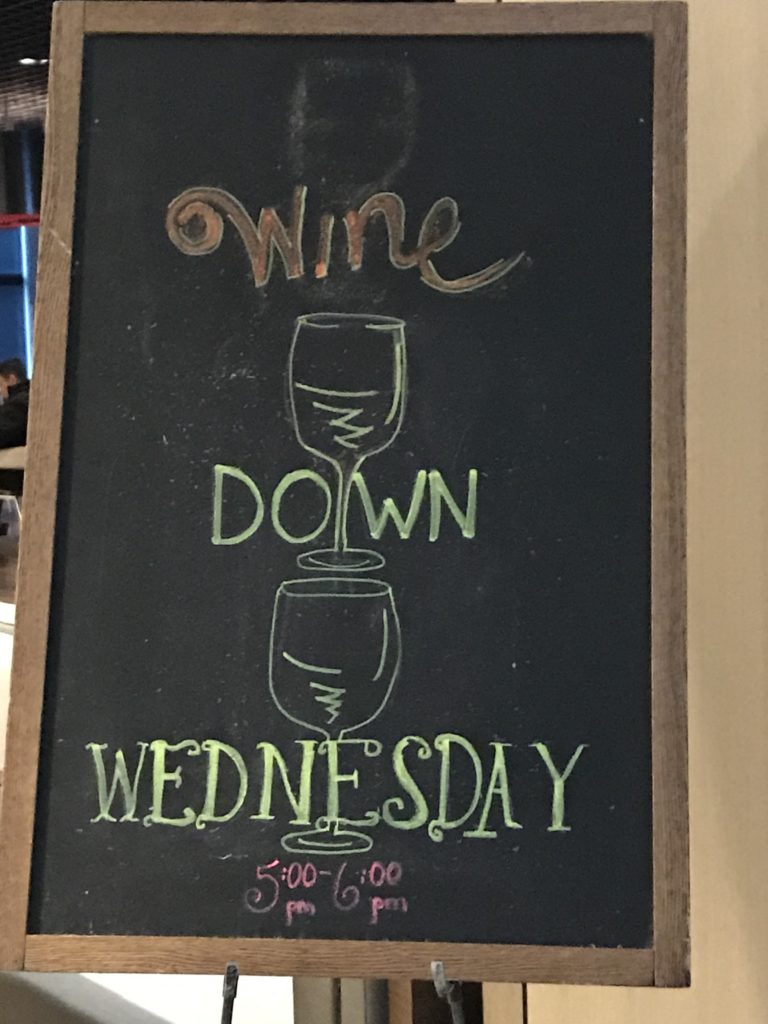 Wine
DOWN
WEDNESDAY
5:00-6:00
pm pm